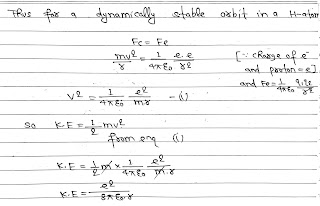 Thus for a dynamically stable orbit in a H-atom
Fc = Fe
mv²/r = 1/4πε₀ e.e/r² [∵ charge of e⁻
and proton = e]
and Fe = 1/4πε₀ q₁q₂/r²
v² = 1/4πε₀ e²/mr - (i)
so K.E = 1/2 mv²
from eq (i)
K.E = 1/2 m × 1/4πε₀ e²/m.r
K.E = e²/8πε₀.r